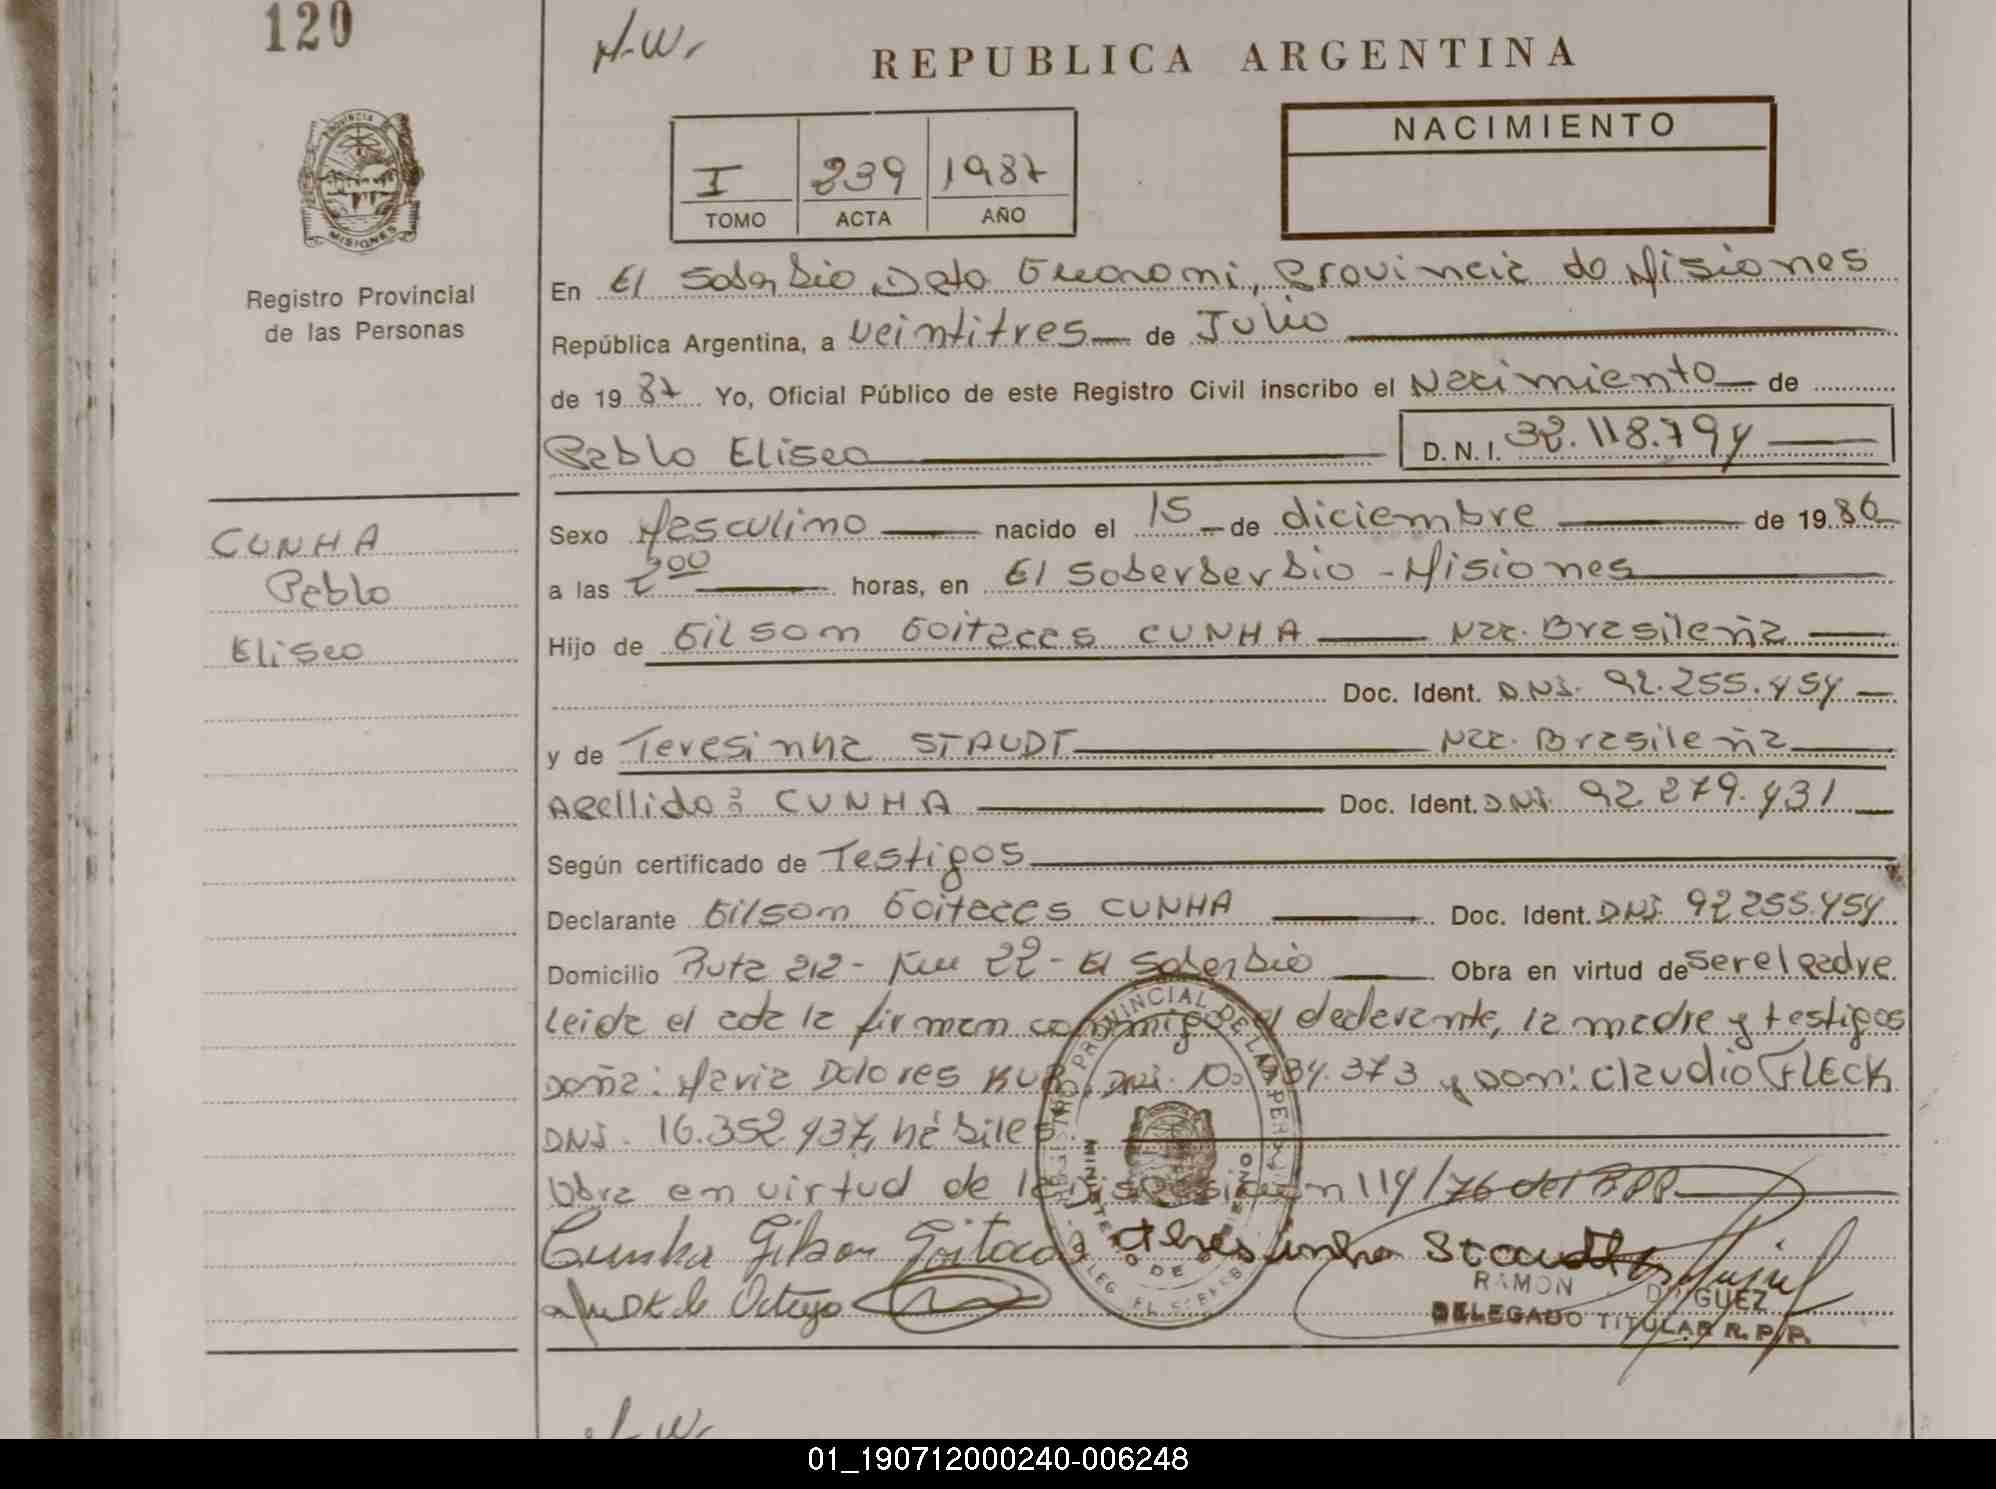 120
H-W.
REPUBLICA ARGENTINA
PROVINCIA DE
MISIONES
Registro Provincial
de las Personas
I 239 1987
TOMO ACTA AÑO
NACIMIENTO
En El Soberbio Dpto Guaraní, Provincia de Misiones
República Argentina, a veintitres de Julio
de 19 87 Yo, Oficial Público de este Registro Civil inscribo el Nacimiento de
Pablo Eliseo D.N.I. 32.118.794
CUNHA
Pablo
Eliseo
Sexo Masculino nacido el 15 de diciembre de 19 86
a las 2 00 horas, en El Soberberbio - Misiones
Hijo de Gilsom Goitacas CUNHA Nac. Brasileña
Doc. Ident. DNI. 92.255.454
y de Teresinha STAUDT Nac. Brasileña
Apellido: CUNHA Doc. Ident. DNI. 92.279.431
Según certificado de Testigos
Declarante Gilsom Goitacas CUNHA Doc. Ident. DNI. 92.255.454
Domicilio Ruta 212 - Km 22 - El Soberbio Obra en virtud de ser el padre
Leida el acta la firman conmigo el declarante, la madre y testigos
doña: Maria Dolores DNI. 10. 34.373 y don: Claudio FLECK
DNI. 16.352.437, hábiles.
Obra en virtud de la Disposición 114/76 del RPP
Cunha Gilson Goitacas Theresinha Staudt
RAMON DIGUEZ
DELEGADO TITULAR R.P.P.
REGISTRO PROVINCIAL DE LAS PERSONAS
MINISTERIO DE GOBIERNO
DELEG. EL SOBERBIO
W.
01_190712000240-006248